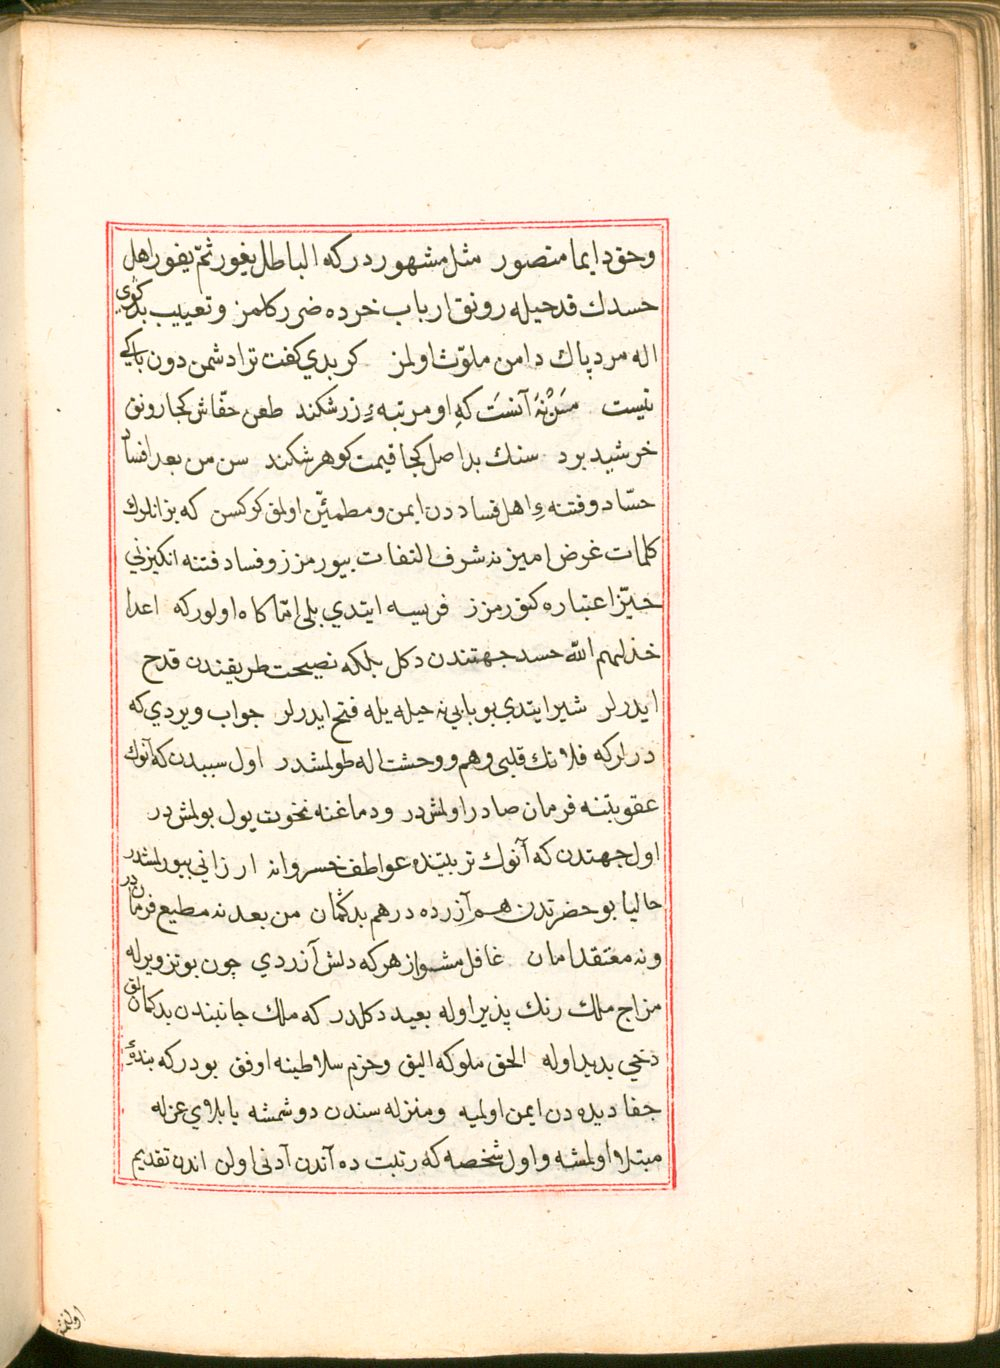 وحق دايما منصور مثل مشهور در كه الباطل يغور ثمّ يفور اهل
حسدك قدحيله رونق ارباب خرده ضرر كلمز و تعييب بدكوى
اله مرد پاك دامن ملوّث اولمز كر بدي كفت ترا دشمن دون باكي
نيست آنست كه او مرتبهٔ زر شكند طعن خفّاش كجا رونق
خرشيد برد سنك بد اصل كجا قيمت كوهر شكند سن من بعد افساد
حسّاد و فتنهء اهل فساددن ايمن و مطمئن اولمق كركسن كه بز انلرك
كلمات غرض اميزنه شرف التفات بيورمزز و فساد فتنه انكيزني
حيّز اعتباره كتورمزز فريسه ايتدي بلى امّا كاه اولور كه اعدا
خذلهم الله حسد جهتندن دكل بلكه نصيحت طريقندن قدح
ايدرلر شير ايتدي بو بابي نه حيله يله فتح ايدرلر جواب ويردي كه
ديرلر كه فلانك قلبى وهم و وحشت اله طولمشدر اول سببدن كه آنوك
عقوبتنه فرمان صادر اولمش در و دماغنه نخوت يول بولمش در
اول جهتدن كه آنوك تربيتنده عواطف خسروانه ارزاني بيورلمشدر
حاليا بو حضرتدن هم آزرده در هم بدكمان من بعد نه مطيع فرمان در
و نه معتقد امان غافل مشو از هركه دلش آزردي چون بو تزويرله
مزاج ملك رنك پذير اوله بعيد دكلدر كه ملك جانبندن بدكمانلق
دخي پديد اوله الحق ملوكه اليق و حزم سلاطينه اوفق بودر كه بندهٔ
جفا ديده دن ايمن اولميه و منزله سندن دوشمشه يا بلاي عزله
مبتلا اولمشه و اول شخصه كه رتبت ده آندن آدنى اولن اندن تقديم
اولنمش